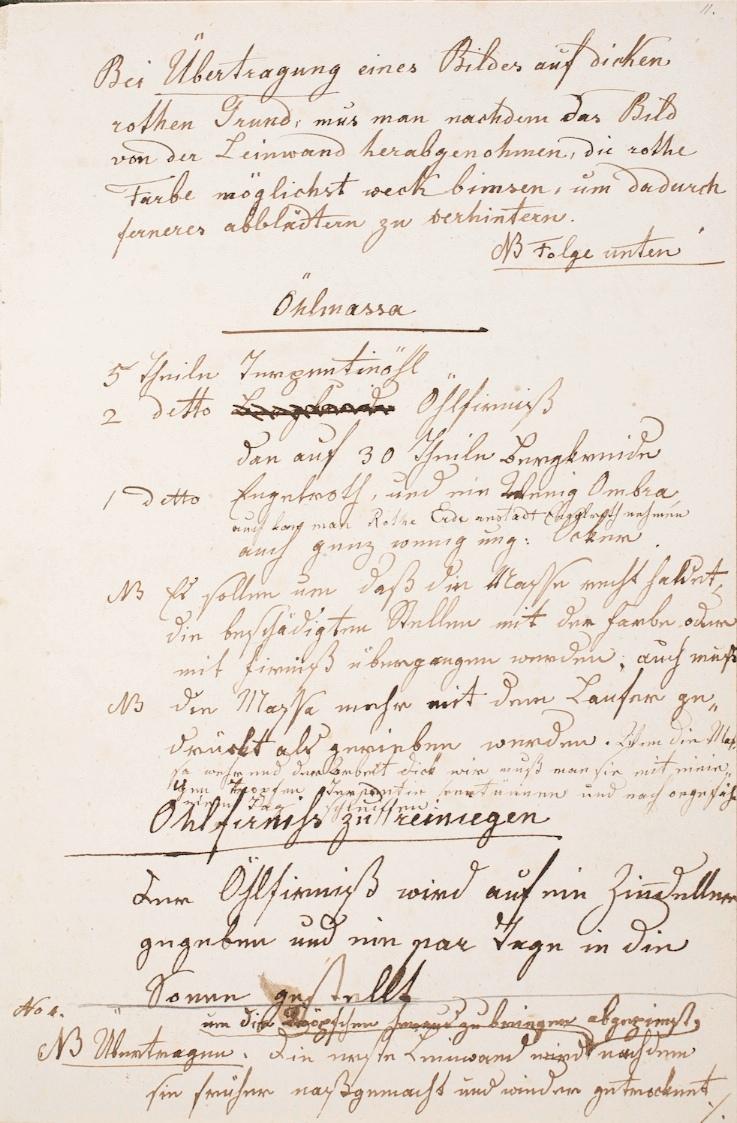 11.
Bei Übertragung eines Bildes auf dicken
rothen Grund, mus man nachdem das Bild
von der Leinwand herabgenohmen, die rothe
Farbe möglichst weck bimsen, um dadurch
ferneres abblädtern zu verhintern.
NB Folge unten
Öhlmassa
5 Theile Terpentinöhl
2 detto Öhlfirniß
dan auf 30 Theile Bergkreide
1 detto Engelroth, und ein Wenig Ombra
auch kan man Rothe Erde anstadt Engelroth nehmen
auch ganz wenig ung: Ocker
NB Es sollen um daß die Masse recht haldet,
die beschädigten Stellen mit der Farbe oder
mit Firniß übergangen werden, auch muß
NB die Massa mehr mit dem Laufer ge„
drückt als gerieben werden. Wen die Mas„
sa wehrend der Arbeit dick wir muß man sie mit eini„
gen Tropfen Terpentin verdünnen und nach ongefähr
Tag schleiffen.
Öhlfirniß zu reiniegen
Der Öhlfirniß wird auf ein Zindeller
gegeben und ein par Tage in die
Sonne gestellt
No 1.
um die Knöpfchen heraus zu bringen abgebimst,
NB Übertragen. Die erste Leinwand wird nachdem
sie früher naßgemacht und wieder getrocknet
./.